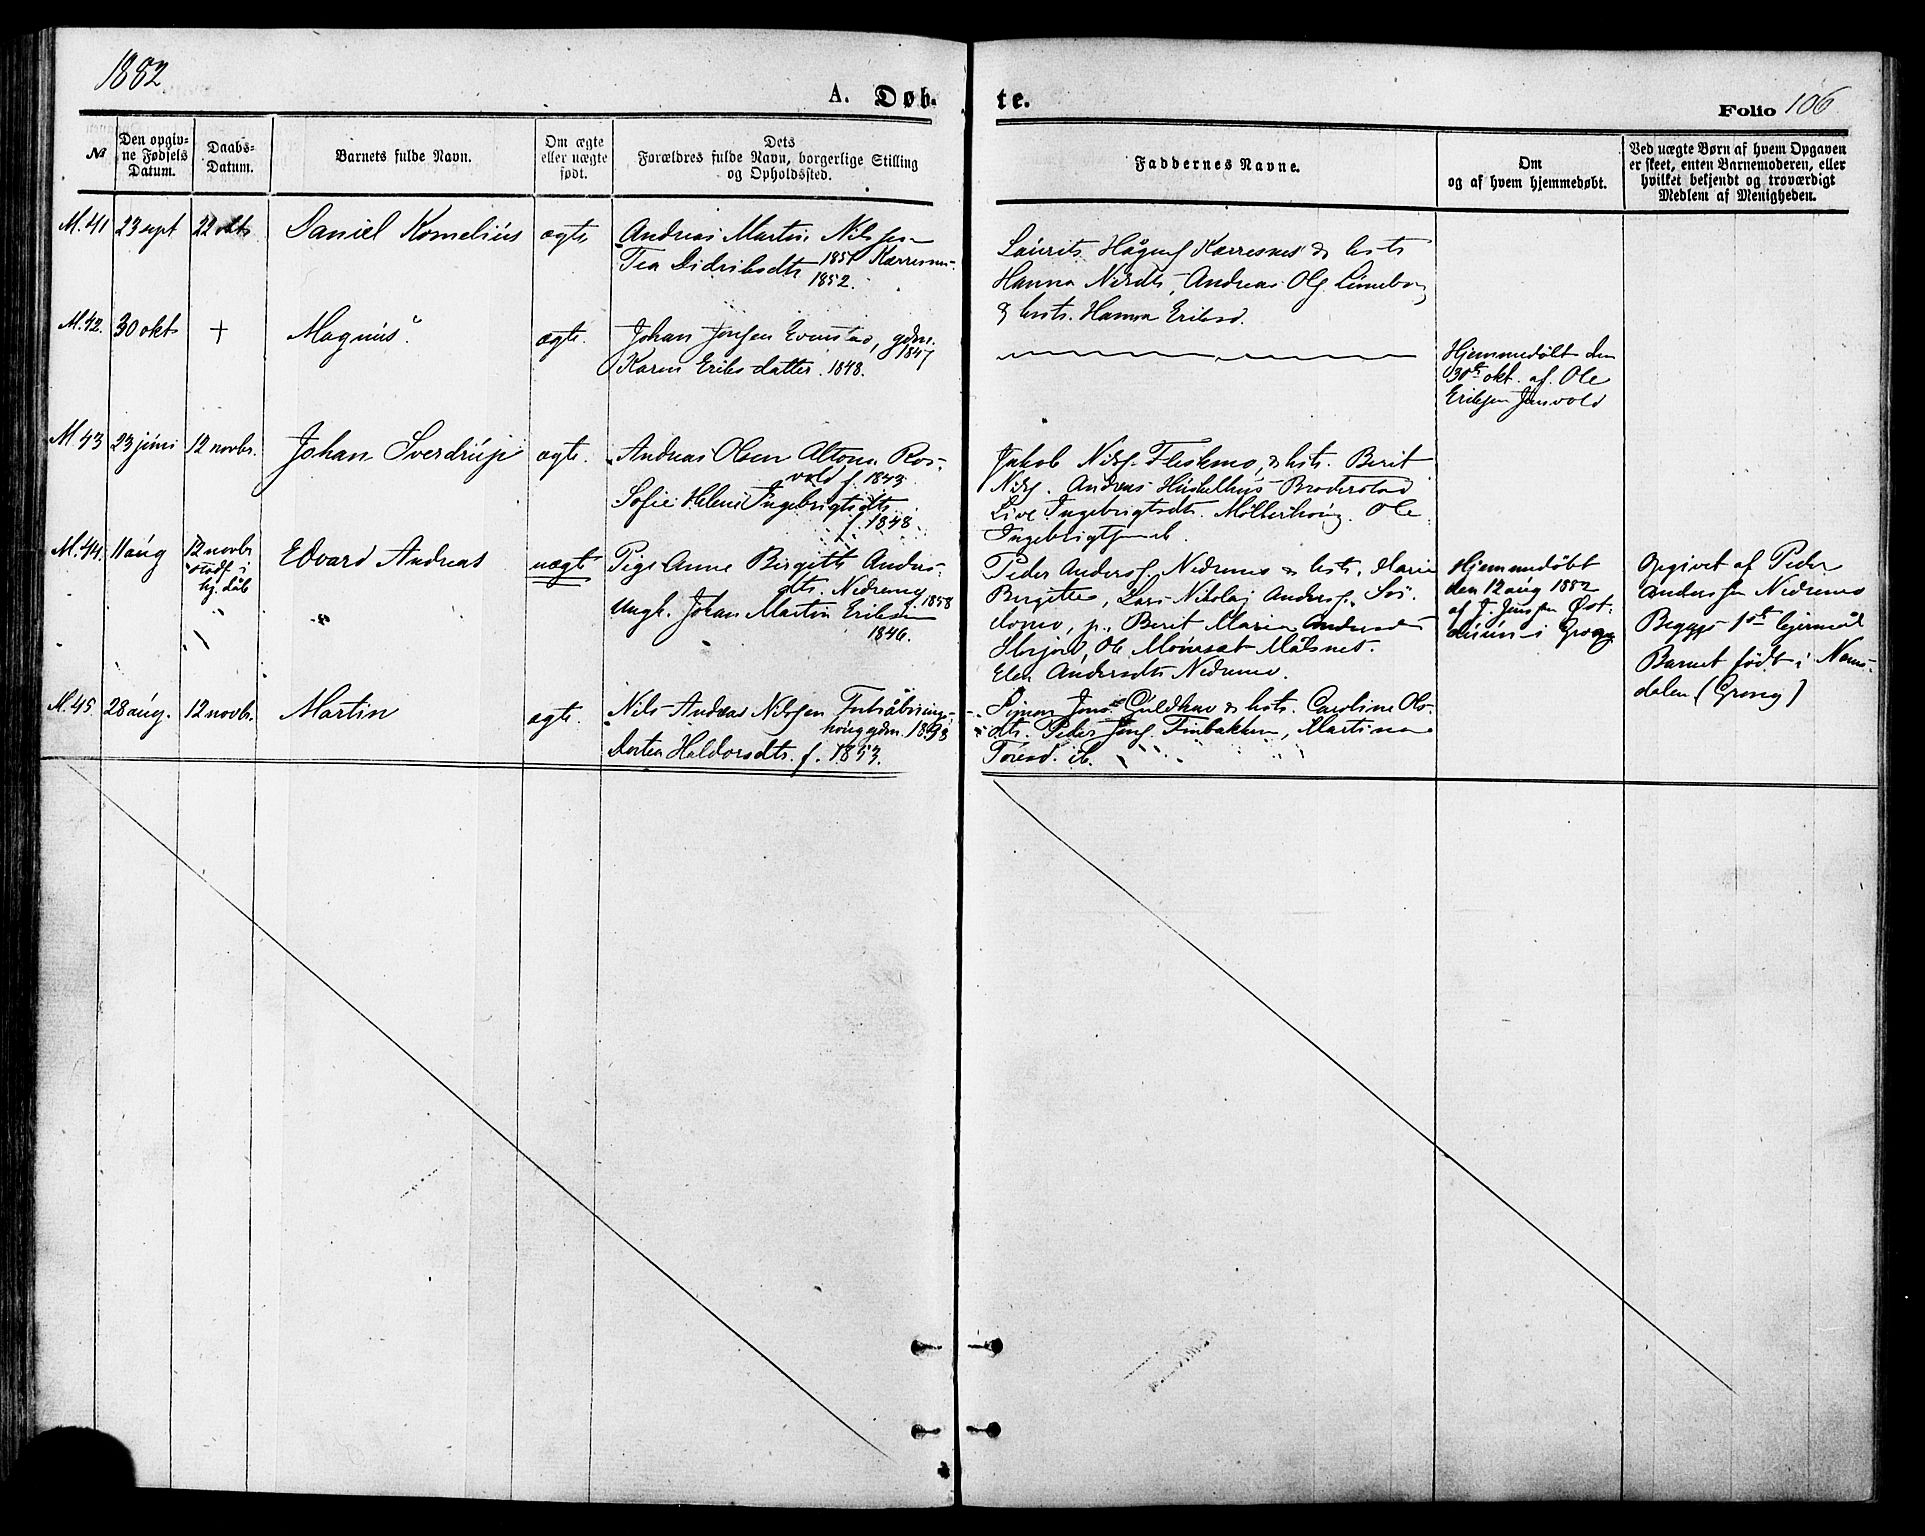 1882
A. Døb-
te.
Folio 106
№
Den opgiv-
ne Fødsels
Datum.
Daabs-
Datum.
Barnets fulde Navn.
Om ægte
eller uægte
født.
Dets
Forældres fulde Navn, borgerlige Stilling
og Opholdssted.
Faddernes Navne.
Om
og af hvem hjemmedøbt.
Ved uægte Børn af hvem Opgaven
er skeet, enten Barnemoderen, eller
hvilket bekjendt og troværdigt
Medlem af Menigheden.
M. 41
23 sept
22 okt
Daniel Kornelius
ægte
Andreas Martin Nilssen
1851
Tea Didriksdtr
1852.
Laurits Kærresnes & hst.
Hanna Andreas Ols.
& hst. Hanna Eriksd.
M. 42.
30 okt
+
Magnus
ægte.
Johan Jensen gdm.
1847
Karen Eriksdatter. 1848.
Hjemmedøbt den
30te okt. af Ole
Eriksen
M. 43
23 juni
12 novbr.
Johan Sverdrup
ægte.
Andreas Olsen Ros-
vold f. 1843
Sofie Helene Ingebrigtsdtr.
f. 1848.
Jakob Nils. Fleskmo, & hst. Berit
Nils. Andreas Broderstad
Live Ingebrigtsdtr. Ole
M. 44.
11 aug
12 novbr
stadf. i
hj. døb
Edvard Andreas
uægte
Pige Anne Birgitte Anders-
dtr. Nedremo f. 1858
Ungk. Johan Martin Eriksen
1846.
Peder Anders. Nedremo & hst. Marie
Bergitte, Lars Nikolaj Anders.
p., Berit Maria Andersd.
Elen Andersdtr Nedremo.
Hjemmedøbt
den 12 aug 1882
af J. Jensen
i Grong
Opgivet af Peder
Anderssen Nedremo
Begges 1ste lejermål
Barnet født i Nams-
dalen (Grong)
M. 45
28 aug.
12 novbr.
Martin
ægte.
Nils Andreas Nilssen
gdm.
Haldorsdtr. f. 1853.
Simon Guldhav & hst. Caroline Ols-
dtr. Peder Finbakken, Martina
Toresd. ib.